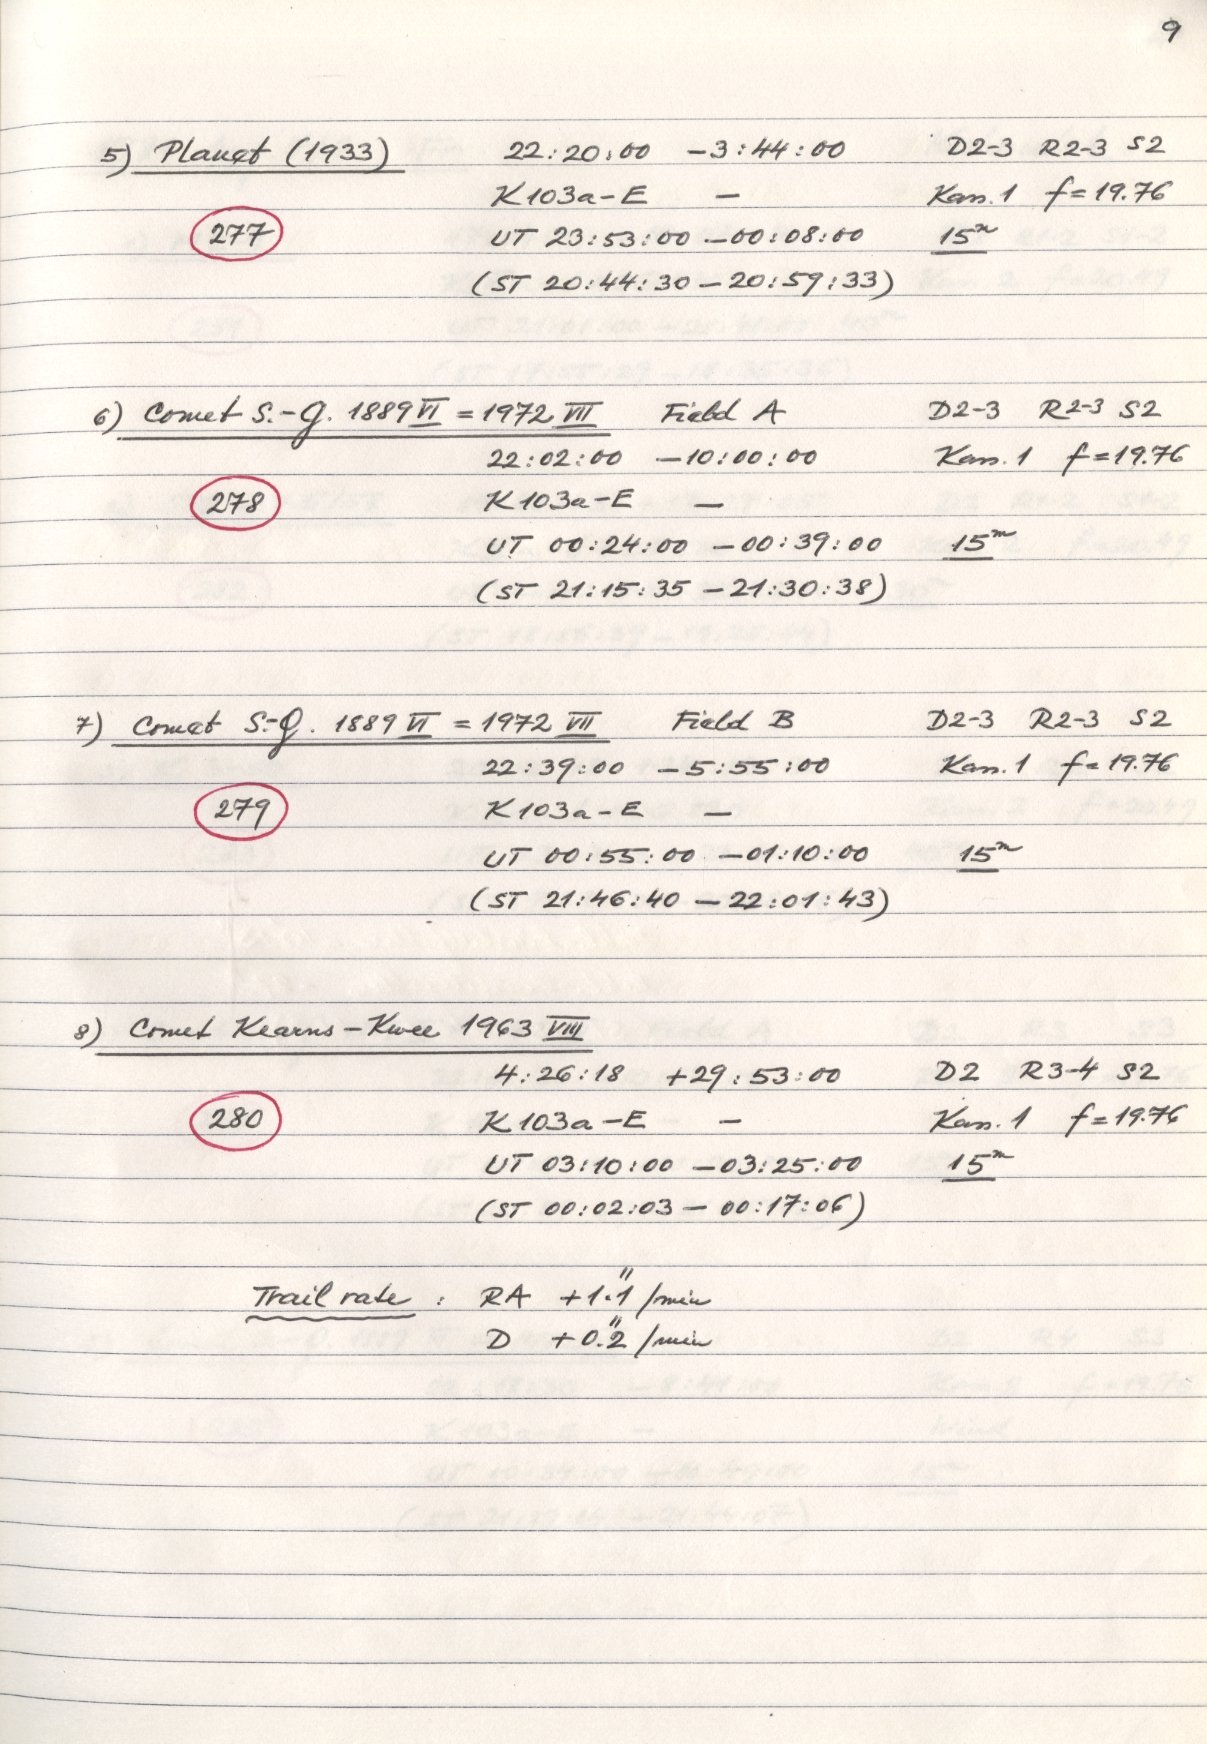 9
5) Planet (1933) 22:20:00 -3:44:00 D2-3 R2-3 S2
K103a-E — Kan. 1 f=19.76
277 UT 23:53:00 -00:08:00 15m
(ST 20:44:30 - 20:59:33)
6) Comet S.-G. 1889 VI = 1972 VII Field A D2-3 R2-3 S2
22:02:00 -10:00:00 Kan. 1 f=19.76
278 K103a-E —
UT 00:24:00 -00:39:00 15m
(ST 21:15:35 -21:30:38)
7) Comet S.-G. 1889 VI = 1972 VII Field B D2-3 R2-3 S2
22:39:00 -5:55:00 Kan. 1 f=19.76
279 K103a-E —
UT 00:55:00 -01:10:00 15m
(ST 21:46:40 - 22:01:43)
8) Comet Kearns-Kwee 1963 VIII
4:26:18 +29:53:00 D2 R3-4 S2
280 K103a-E — Kan. 1 f=19.76
UT 03:10:00 -03:25:00 15m
(ST 00:02:03 - 00:17:06)
Trail rate : RA +1."1 /min
D +0."2 /min